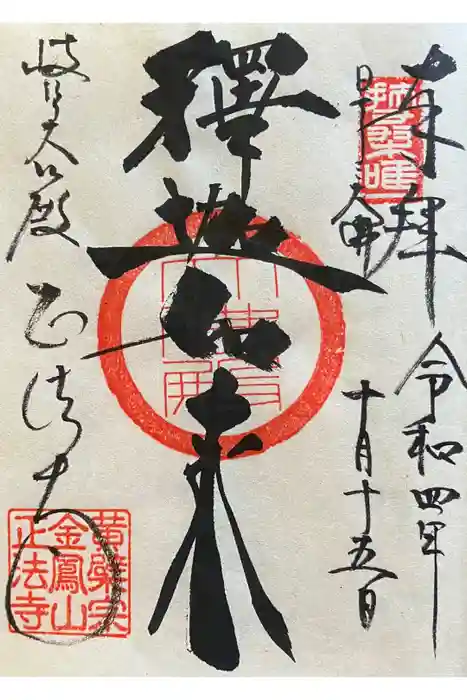 奉拝
日本三大佛
令和四年
十月十五日
釋迦如来
岐阜大仏殿
正法寺
黄檗宗
金鳳山
正法寺